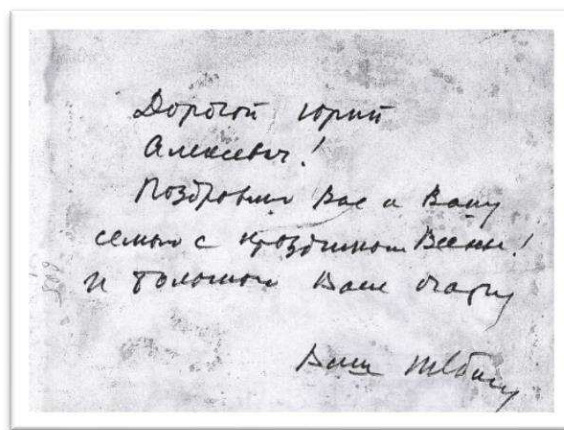 Дорогой Юрий
Алексеевич!
Поздравляю Вас и Вашу
семью с праздником Весны!
и большой Вам
Ваш